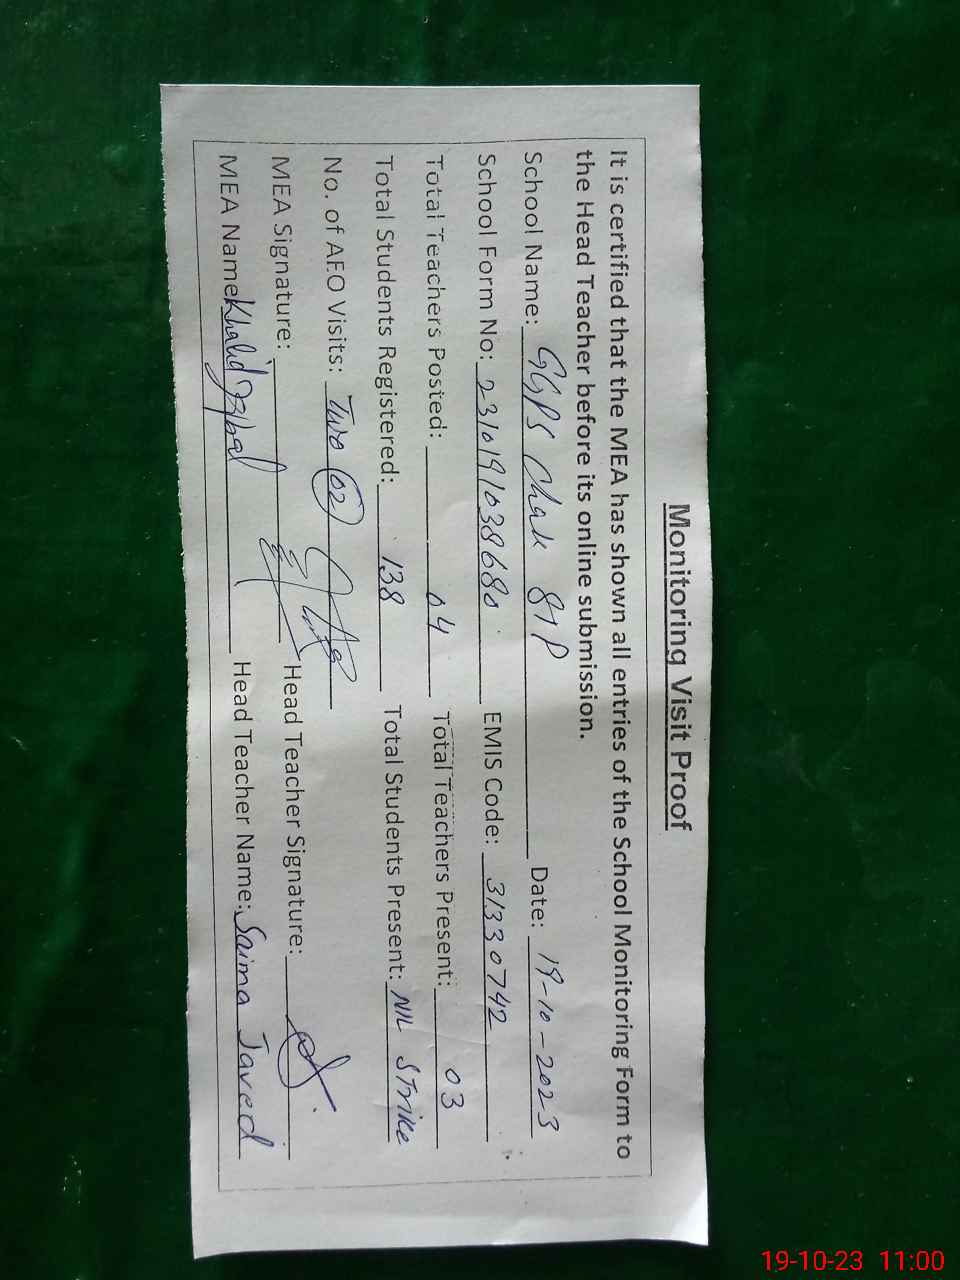 Monitoring Visit Proof
It is certified that the MEA has shown all entries of the School Monitoring Form to
the Head Teacher before its online submission.
School Name: GGPS Chak 81P Date: 19-10-2023
School Form No: 2310191038680 EMIS Code: 31330742
Total Teachers Posted: 04 Total Teachers Present: 03
Total Students Registered: 138 Total Students Present: NIL Strike
No. of AEO Visits: Two 02
MEA Signature: Head Teacher Signature:
MEA Name Khalid Iqbal Head Teacher Name: Saima Javed
19-10-23 11:00